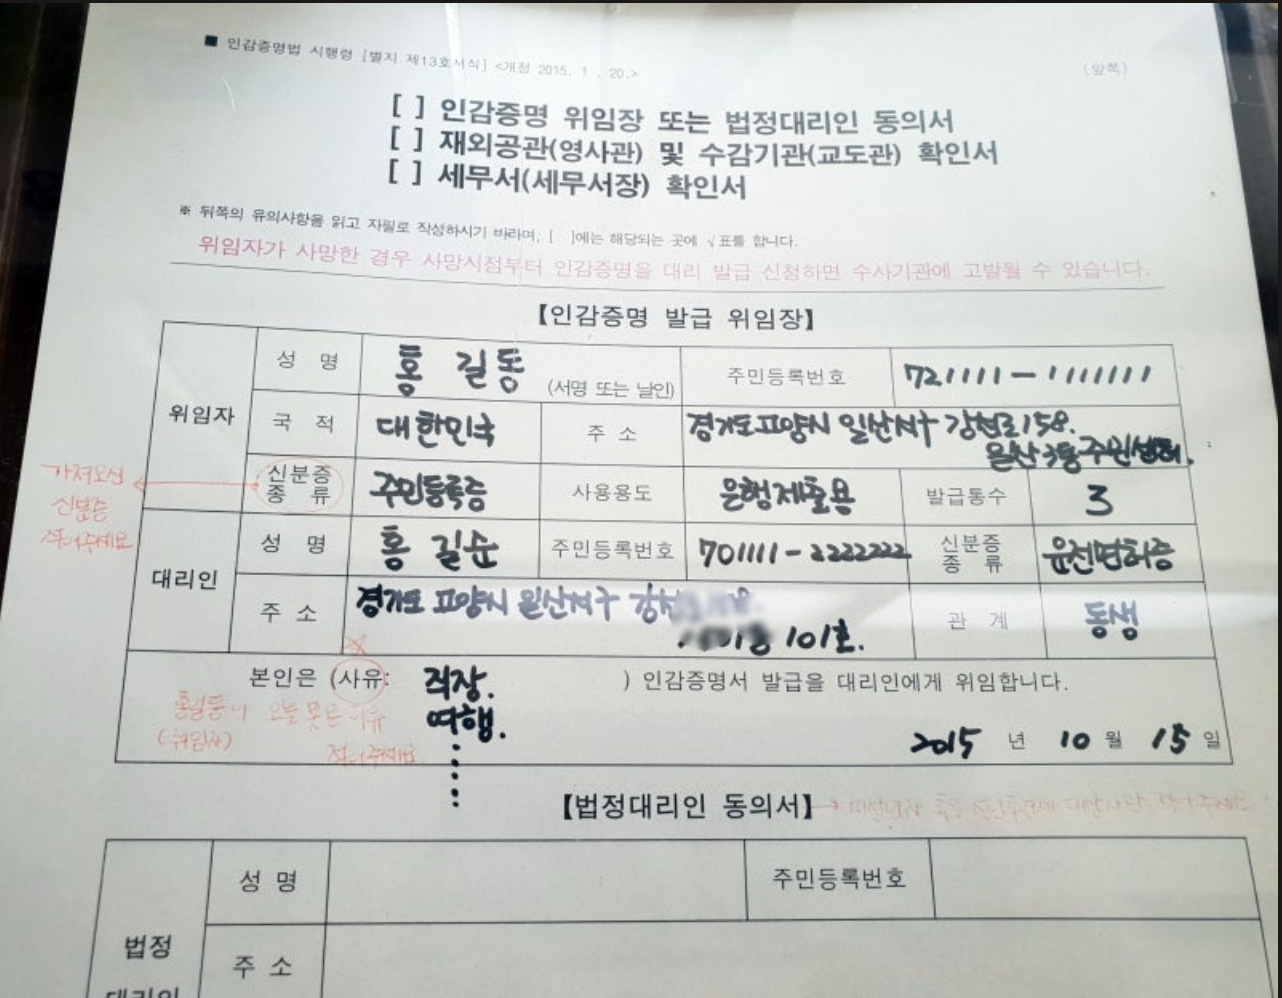 ■ 인감증명법 시행령 [별지 제13호서식] <개정 2015. 1. 20.>
(앞쪽)
[ ] 인감증명 위임장 또는 법정대리인 동의서
[ ] 재외공관(영사관) 및 수감기관(교도관) 확인서
[ ] 세무서(세무서장) 확인서
※ 뒤쪽의 유의사항을 읽고 자필로 작성하시기 바라며, [ ]에는 해당되는 곳에 √표를 합니다.
위임자가 사망한 경우 사망시점부터 인감증명을 대리 발급 신청하면 수사기관에 고발될 수 있습니다.
【인감증명 발급 위임장】
위임자
성 명 홍 길동 (서명 또는 날인) 주민등록번호 721111-1111111
국 적 대한민국 주 소 경기도 고양시 일산서구 강선로158.
일산3동주민센터.
신분증 종 류 주민등록증 사용용도 은행제출용 발급통수 3
가져오신
신분증
적어주세요
대리인
성 명 홍 길순 주민등록번호 701111-2222222 신분증 종 류 운전면허증
주 소 경기도 고양시 일산서구 강선
101호.
관 계 동생
본인은 (사유: 직장. ) 인감증명서 발급을 대리인에게 위임합니다.
여행.
홍길동이 오늘 못온이유
(위임자)
적어주세요
2015 년 10 월 15 일
【법정대리인 동의서】
→ 미성년자 혹은 대상자만 적어주세요
법정
대리인
성 명
주민등록번호
주 소